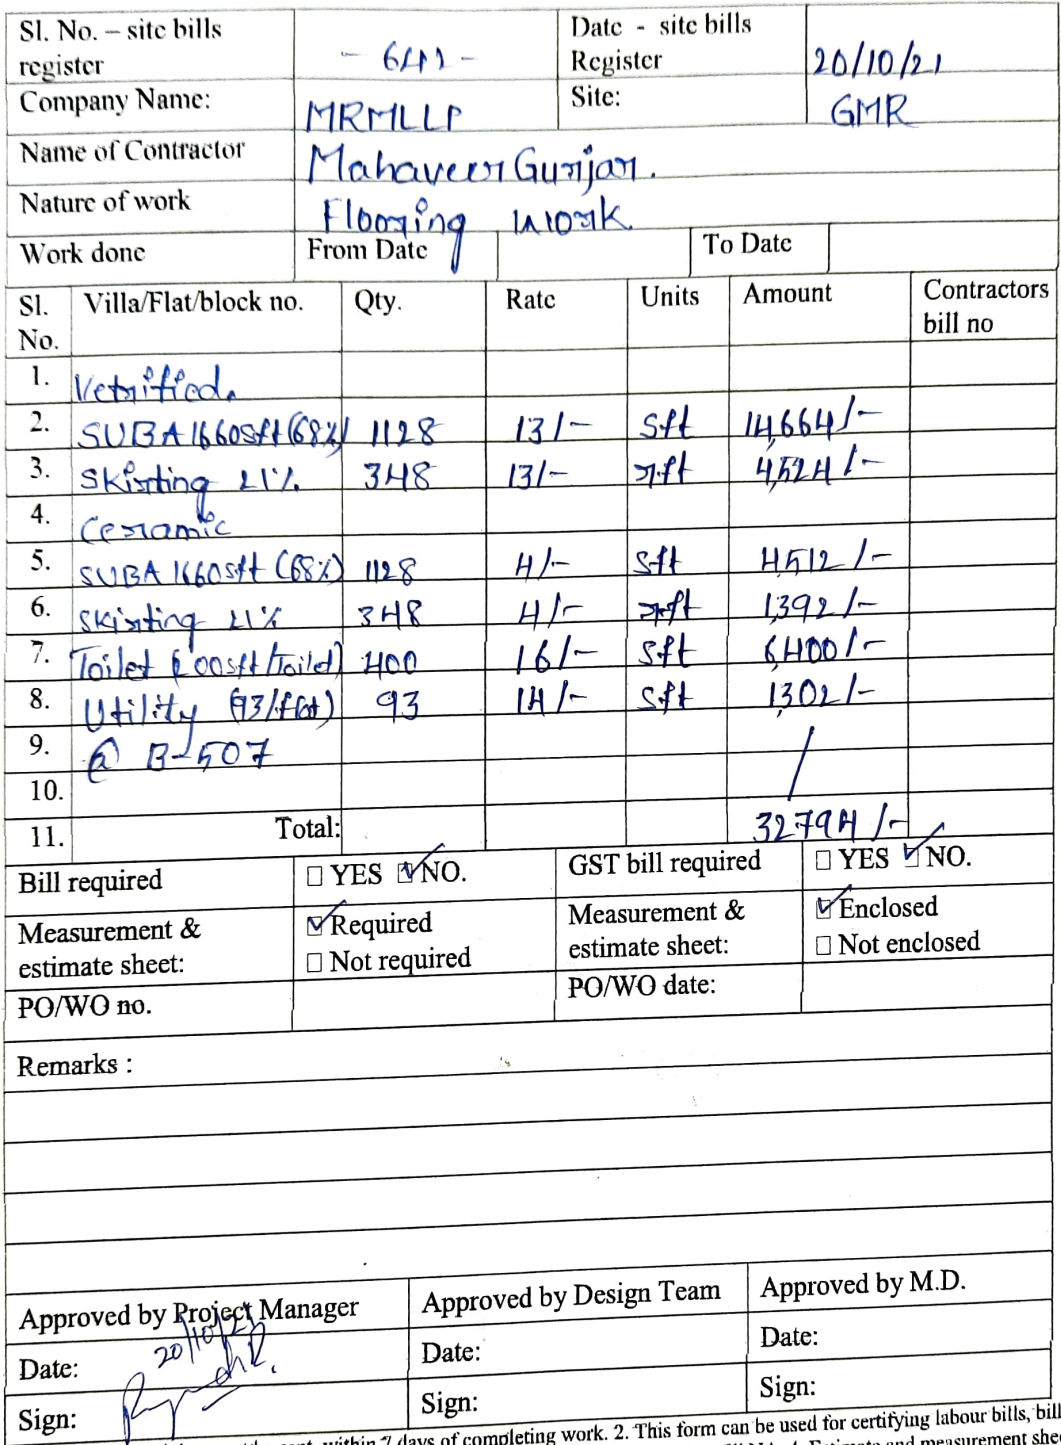 Sl. No. – site bills register - 641 - Date - site bills Register 20/10/21
Company Name: MRMLLP Site: GMR
Name of Contractor Mahaveer Gurjar.
Nature of work Flooring work
Work done From Date To Date
Sl. No. Villa/Flat/block no. Qty. Rate Units Amount Contractors bill no
1. Vetrified.
2. SUBA 1660sft (68%) 1128 13/- sft 14,664/-
3. Skirting 21% 348 13/- rft 4,524/-
4. Ceramic
5. SUBA 1660sft (68%) 1128 4/- sft 4512/-
6. Skirting 21% 348 4/- rft 1,392/-
7. Toilet 00sft/Toilet) 400 16/- sft 6,400/-
8. Utility (93/flat) 93 14/- sft 1,302/-
9. @ B-507
10.
11. Total: 32794/-
Bill required YES NO. GST bill required YES NO.
Measurement & estimate sheet: Required Measurement & estimate sheet: Enclosed
Not required Not enclosed
PO/WO no. PO/WO date:
Remarks :
Approved by Project Manager Approved by Design Team Approved by M.D.
Date: 20/10/21 Date: Date:
Sign: Sign: Sign:
within 7 days of completing work. 2. This form can be used for certifying labour bills, bill